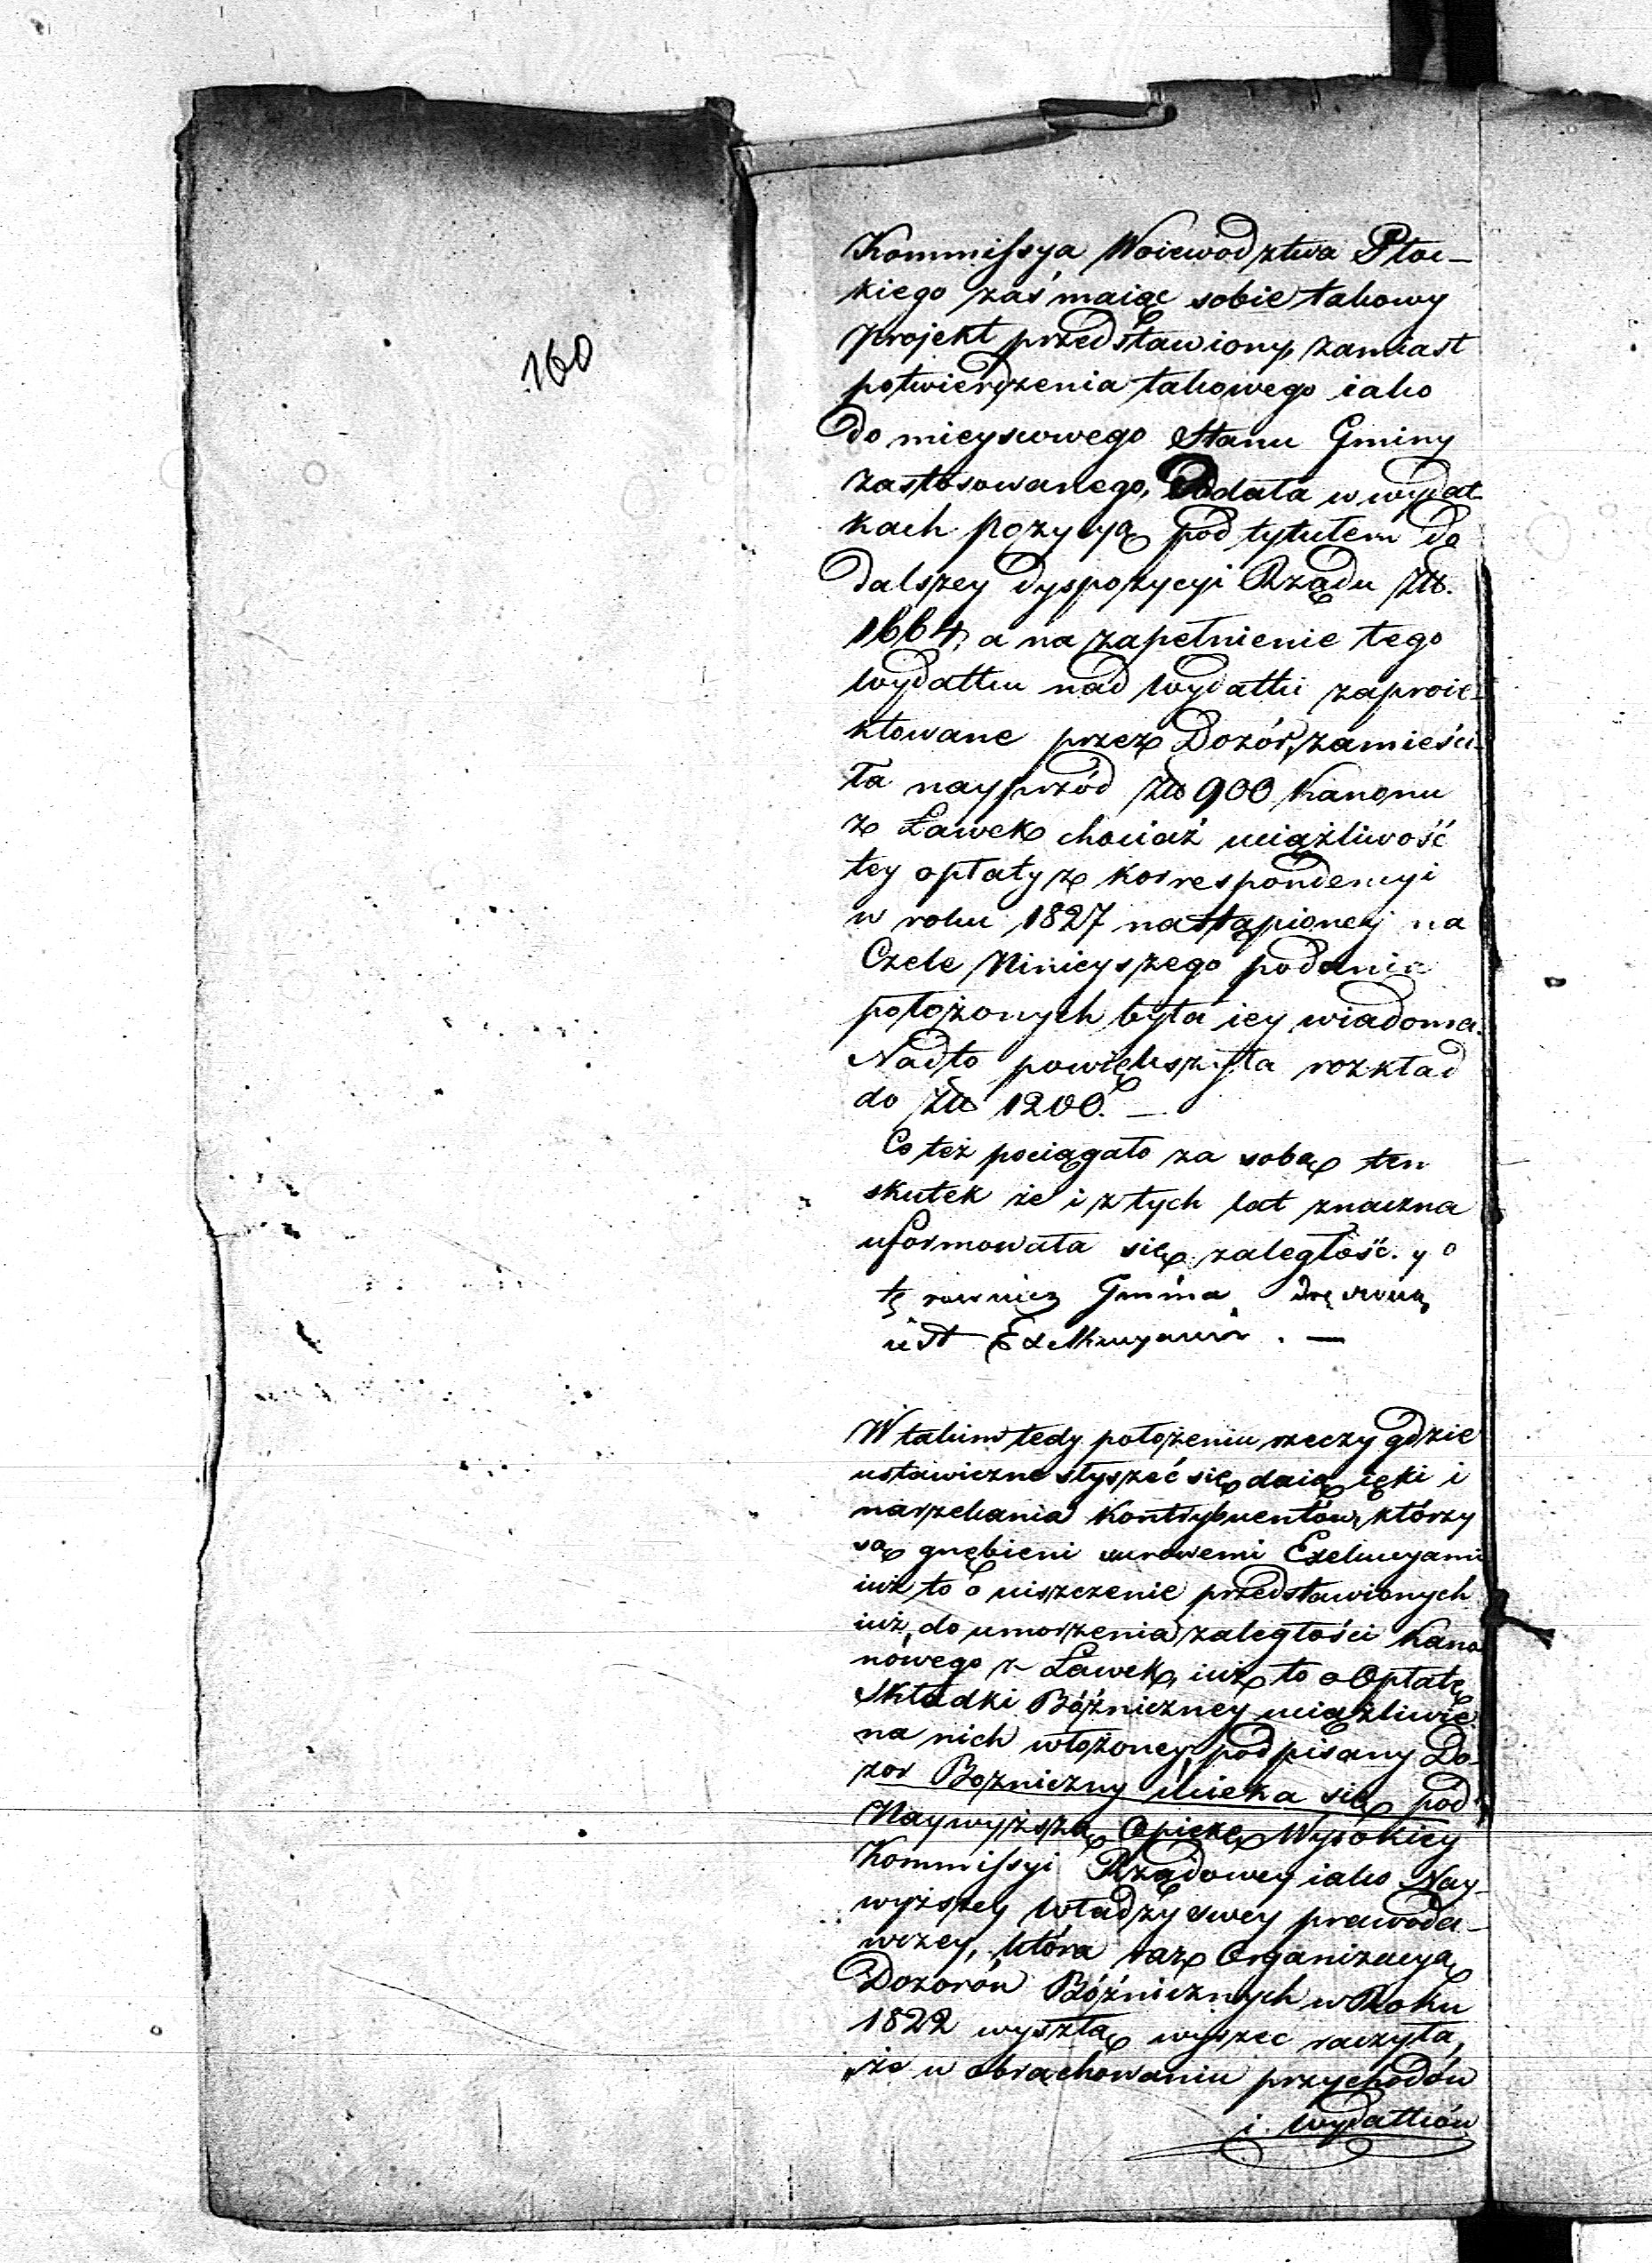 160
Kommissya Woiewodztwa Płoc-
kiego zaś maiąc sobie takowy
projekt przedstawiony, zamiast
potwierdzenia takowego iako
do mieyscowego Stanu Gminy
zastosowanego, Dodała w wydat-
kach pozycyą pod tytułem do
dalszey dyspozycyi Rządu Złł.
1664, a na zapełnienie tego
wydatku nad wydatki zaproie-
ktowane przez Dozór, zamieści-
ła nayprzód Złł 900 Kanonu
z Ławek chociaż uciążliwość
tey opłaty z korrespondencyi
w roku 1827 nastąpioney na
Czele Ninieyszego podania
położonych była iey wiadoma.
Nadto powiększyła rozkład
do Złł 1200. —
Co też pociągało za sobą ten
skutek że i z tych lat znaczna
uformowała się zaległość. y o
tę rownież Gmina dręczoną
iest Exekucyami. —
W takim tedy położeniu rzeczy gdzie
ustawiczne słyszeć się daią ięki i
narzekania Kontrybuentów, którzy
są gnębieni surowemi Exekucyami
iuż to o uiszczenie przedstawionych
iuż do umorzenia zaległości Kano-
nowego z Ławek, iuż to o Opłatę
Składki Bóźniczney uciążliwie
na nich włożoney, podpisany Do-
zor Bozniczny ucieka się pod
Naywyższą Opiekę Wysokiey
Kommissyi Rządowey iako Nay-
wyższey władzy swey prawoda-
wczey, która raz Organizacyą
Dozorów Bóźnicznych w Roku
1822 wyszłą wyrzec raczyła,
że w obrachowaniu przychodów
i wydatków